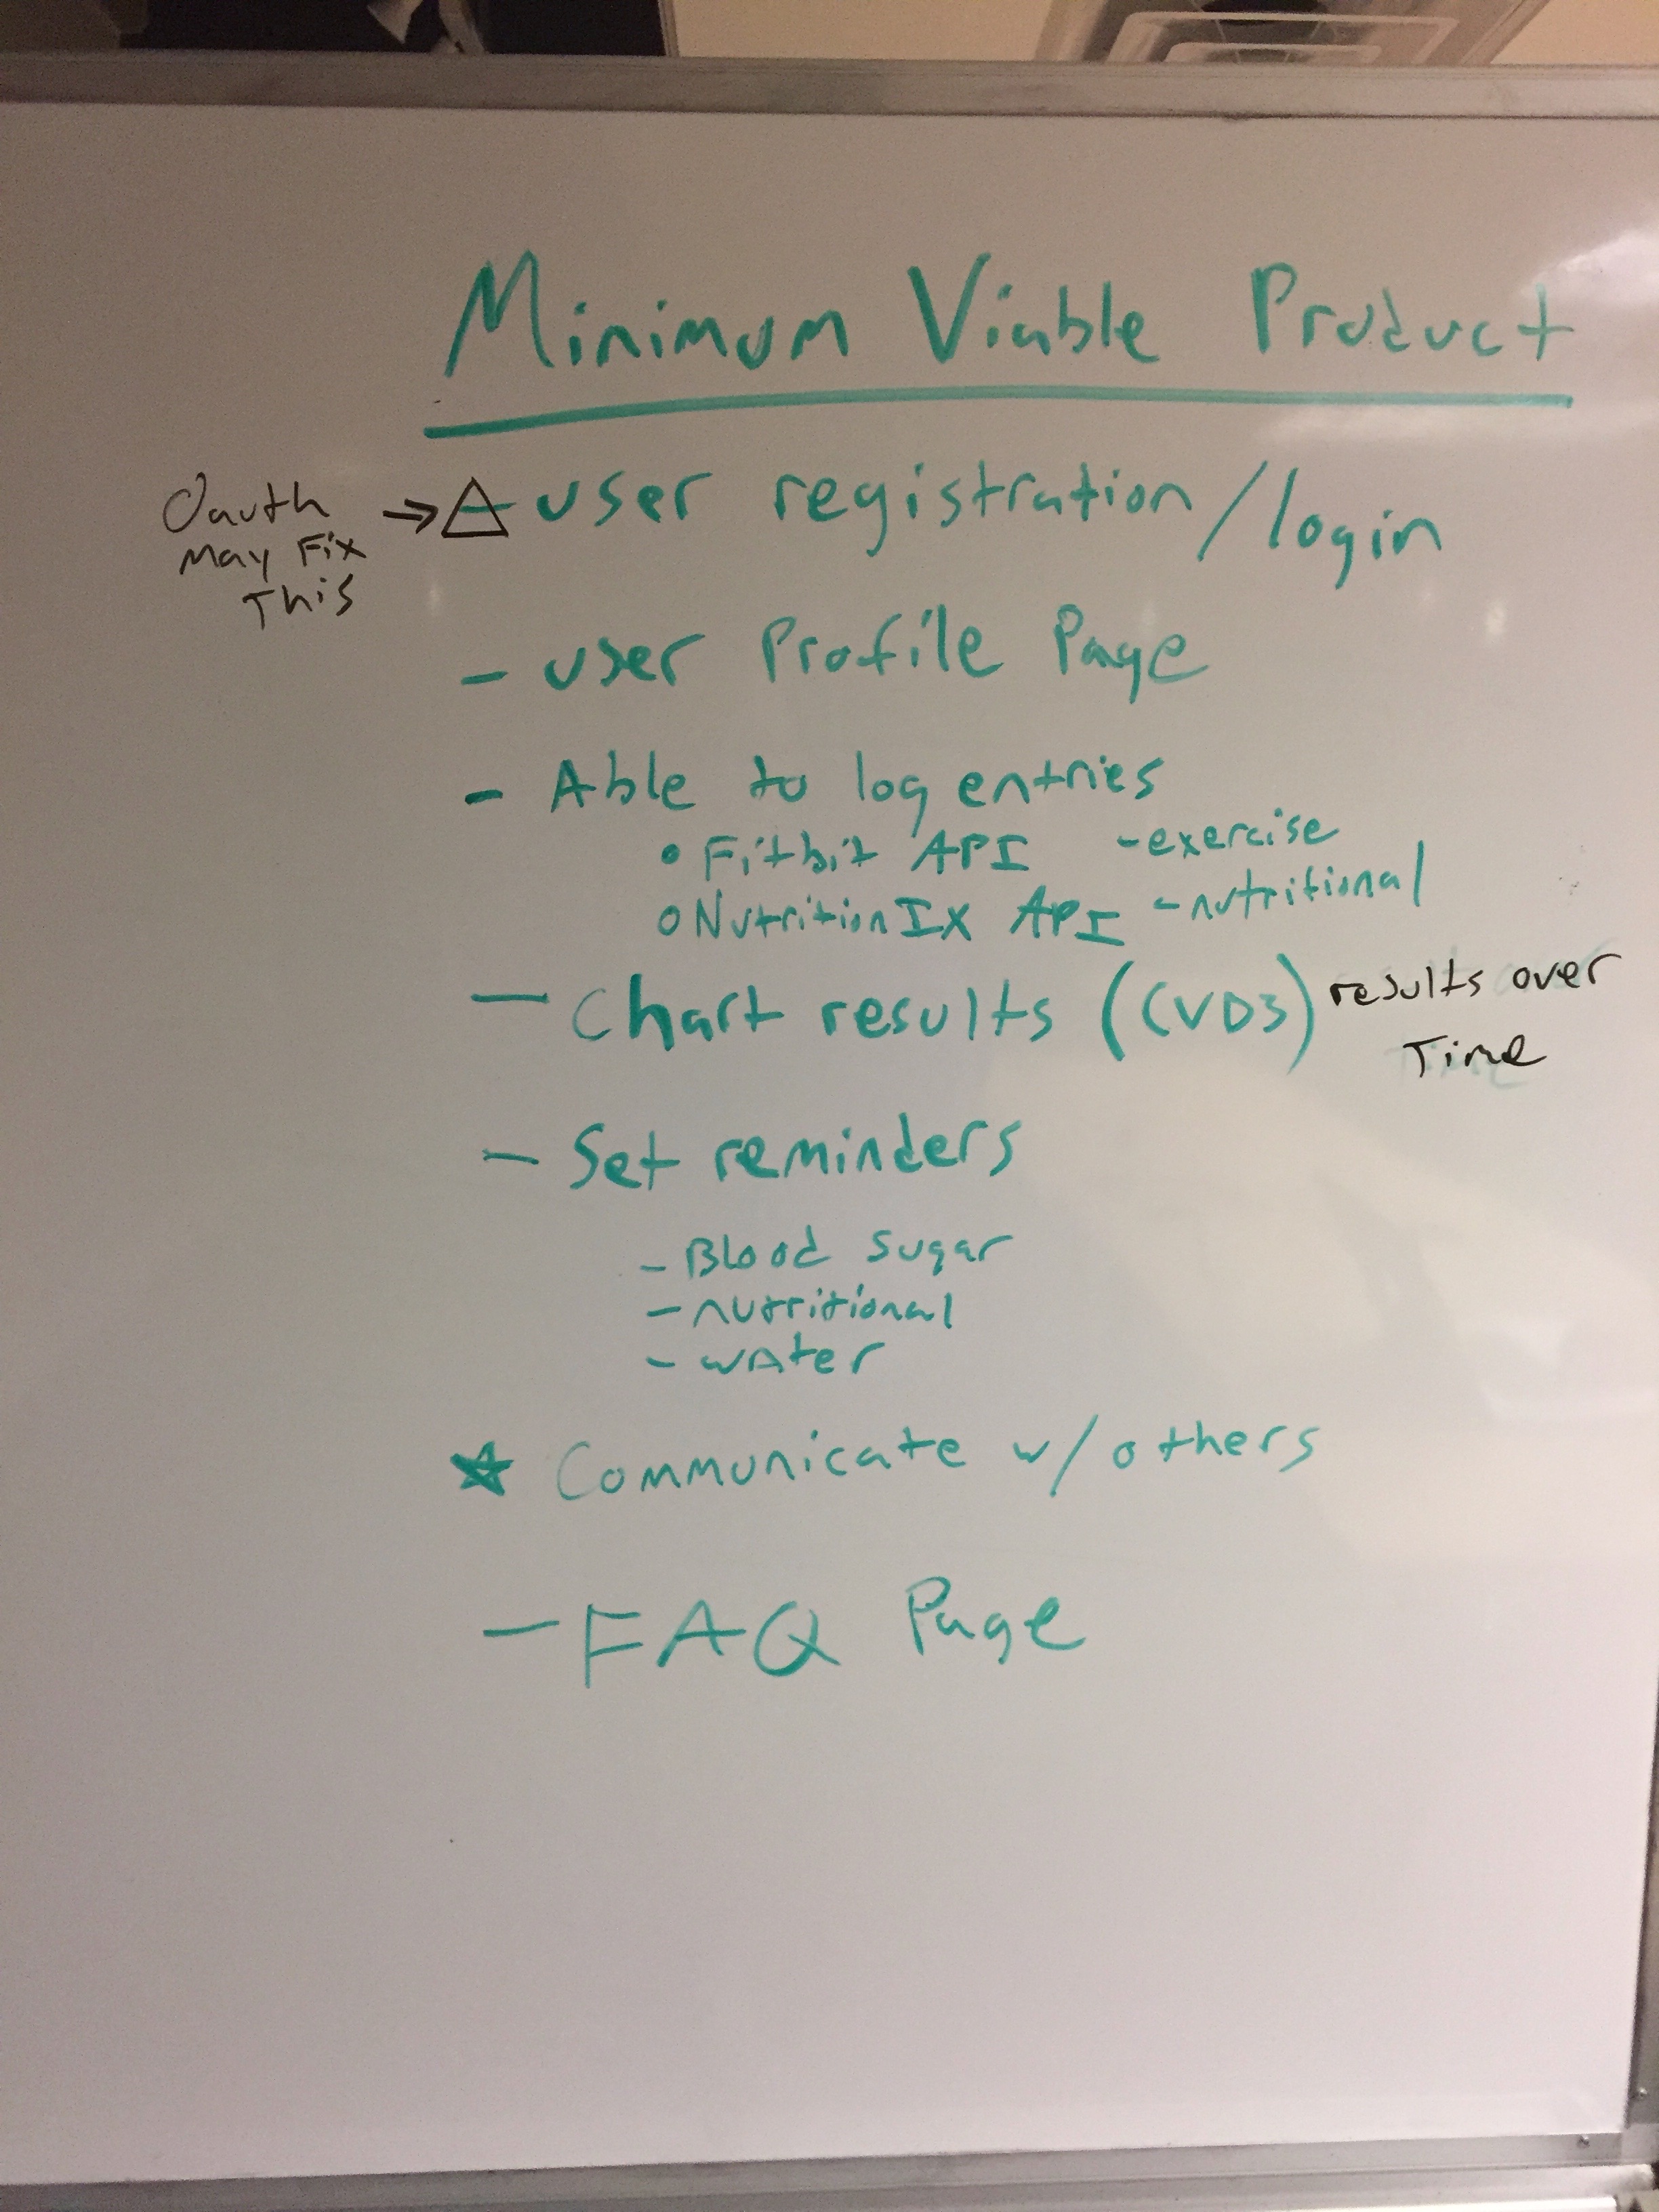 Minimum Viable Product
Oauth → △ user registration/login
may Fix
This
- user Profile Page
- Able to log entries
• Fitbit API - exercise
○ NutritionIX API - nutritional
- Chart results (CVD3) results over
Time
- Set reminders
- Blood sugar
- nutritional
- water
★ Communicate w/ others
- FAQ Page